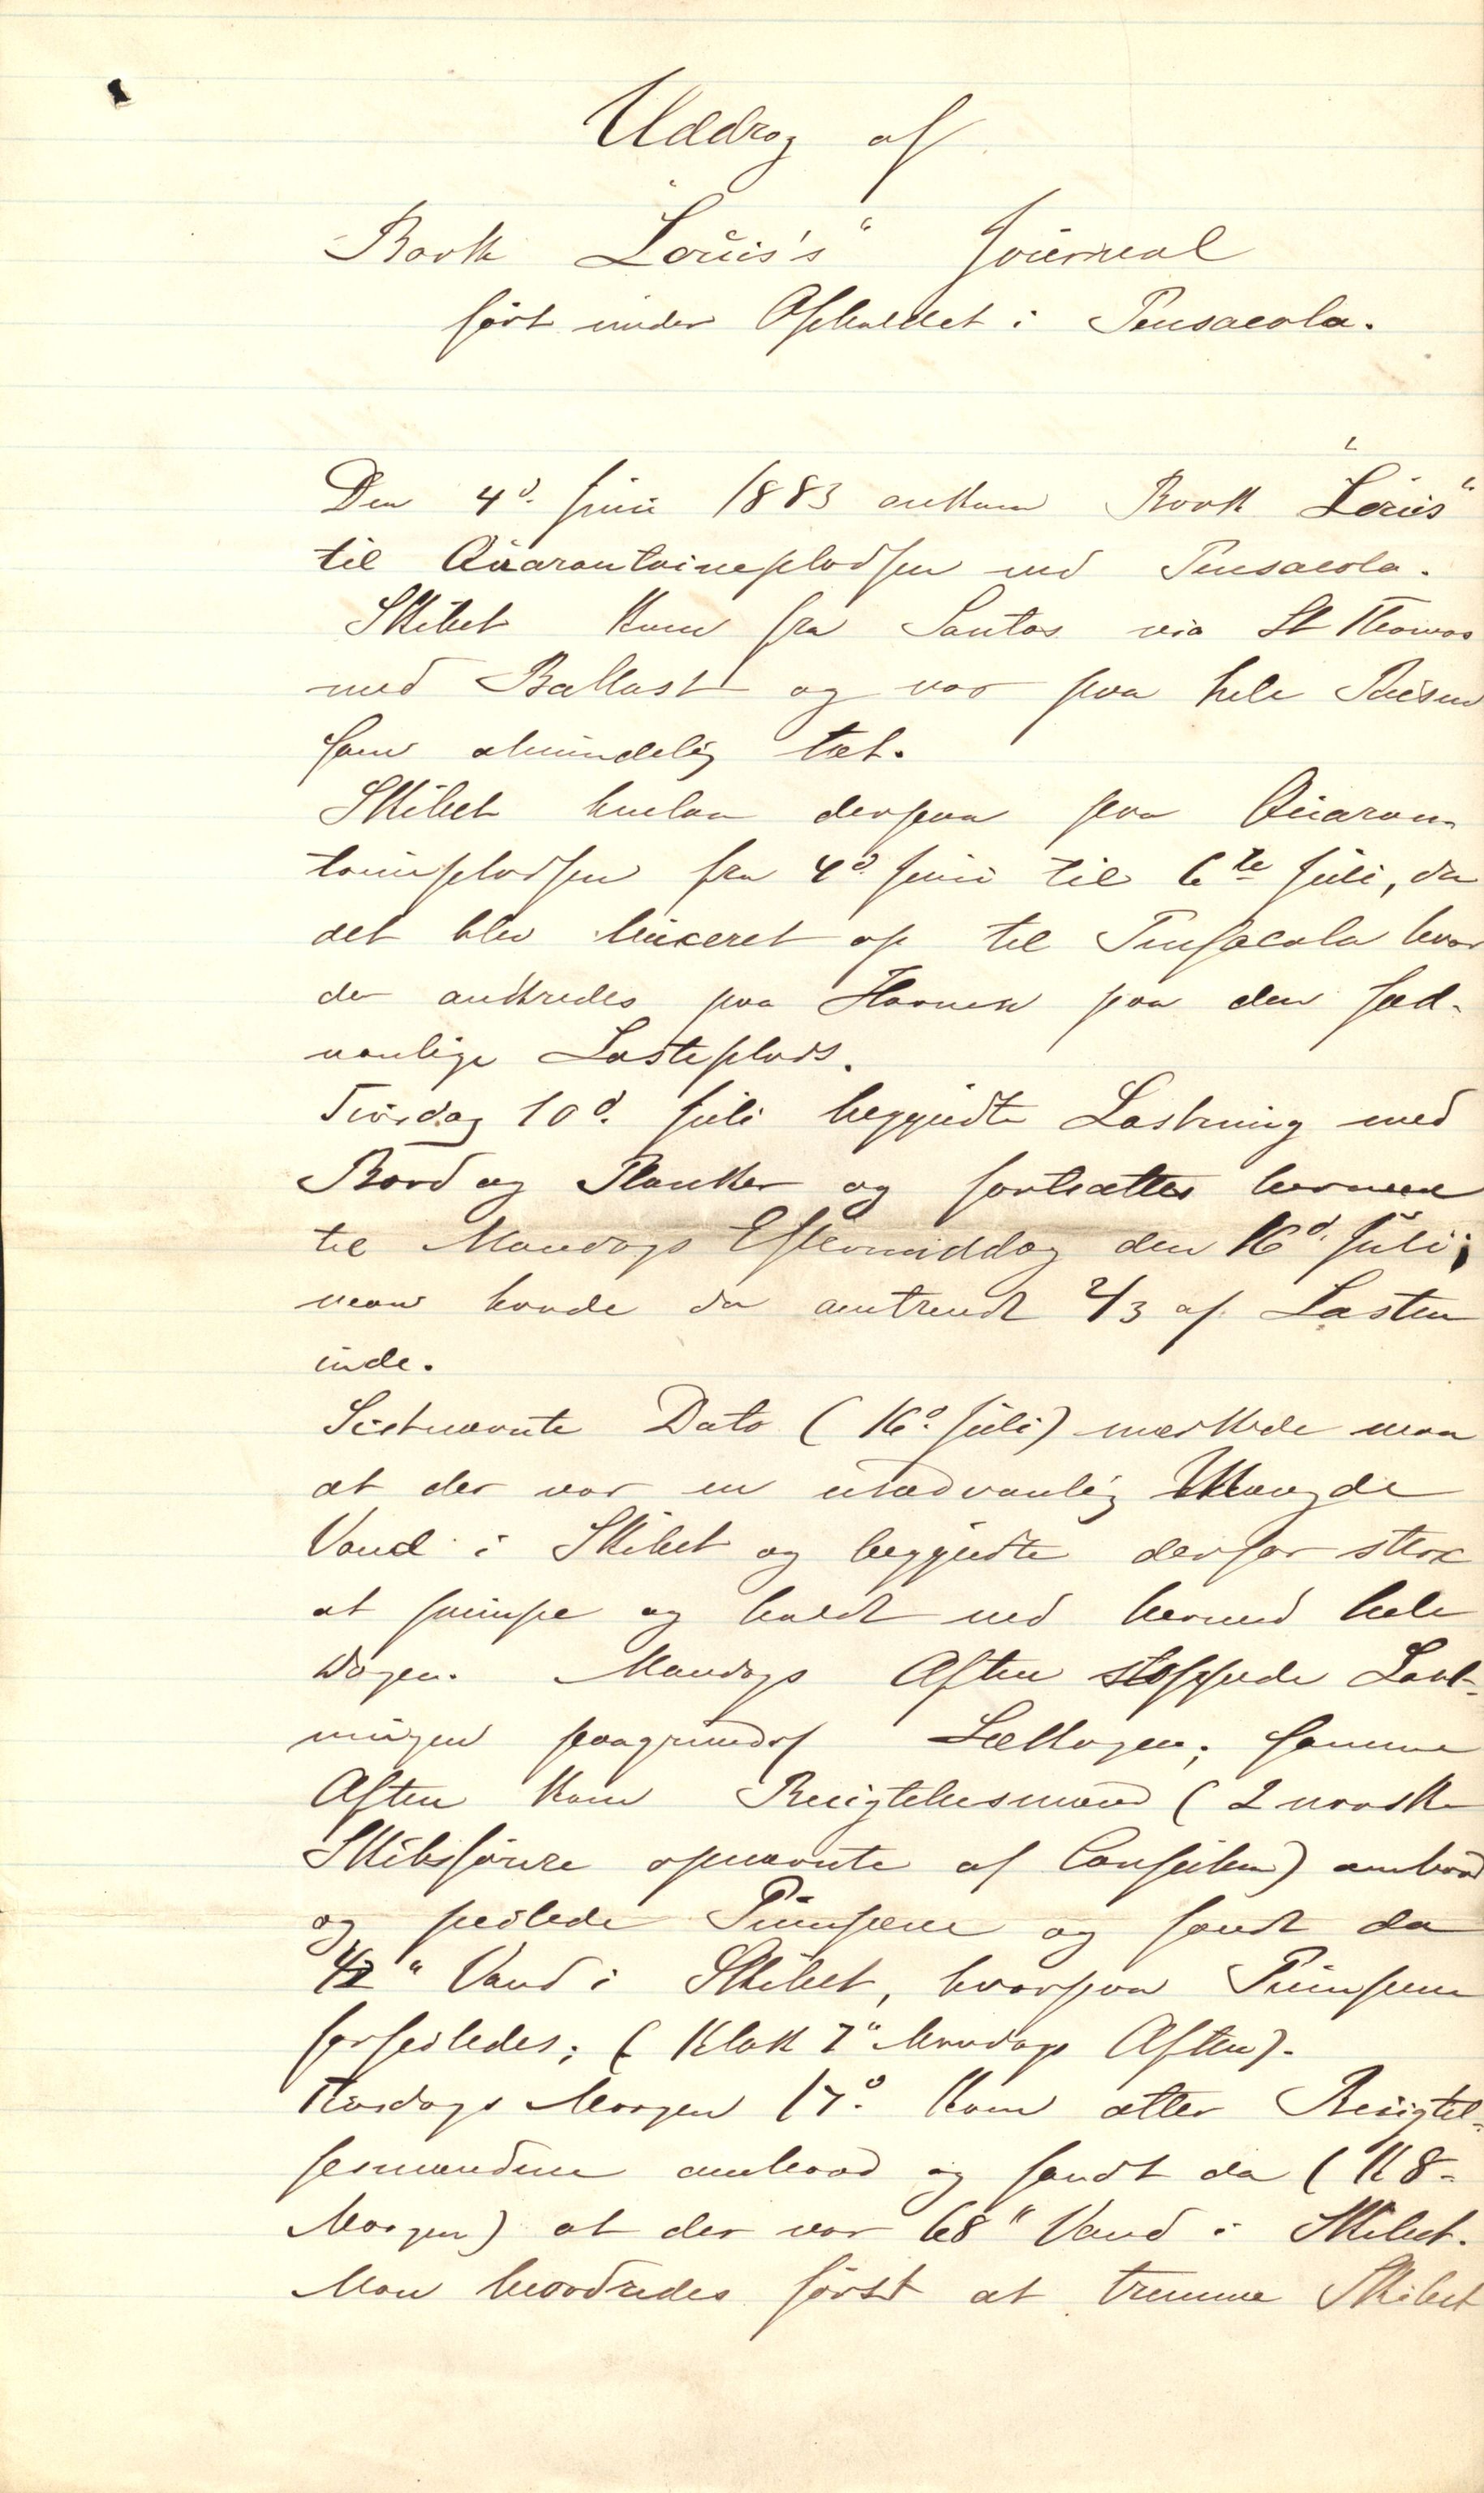 Uddrag af
Bark "Louis's" Journal
ført under Opholdet i Pensacola.
Den 4d. Juni 1883 ankom Bark "Louis"
til Quarantaineplodsen ved Pensacola.
Skibet kom fra Santos via St Thomas
med Ballast og var paa hele Reisen
som almindelig tæt.
Skibet henlaa derpaa paa Quaran-
taineplodsen fra 4d. Juni til 6te Juli, da
det blev buxeret op til Pensacola hvor
de ankredes paa Havnen paa den sæd-
vanlige Lasteplads.
Tirsdag 10d. Juli begyndte Lastning med
Bord og Planker og fortsattes hermed
til Mandags Eftermiddag den 16d. Juli;
man havde da omtrendt 2/3 af Lasten
inde.
Sistnævnte Dato (16d. Juli) mærkede man
at der var en usædvanlig Mængde
Vand i Skibet og begyndte derfor strax
at pumpe og holdt ved hermed hele
Dagen. Mandags Aften stoppede Last-
ningen paagrundaf Lækagen; samme
Aften kom Besigtelsesmænd (2 norske
Skibsførere opnævnte af Consulen) ombord
og peilede Pumperne og fandt da
42" Vand i Skibet, hvorpaa Pumpene
forseiledes; (Klok 7" Mandags Aften).
Tirsdags Morgen 17d. kom atter Besigtel-
sesmændene ombord og fandt da (Kl 8-
Morgen) at der var 68" Vand i Skibet.
Man beordredes først at trimme Skibet